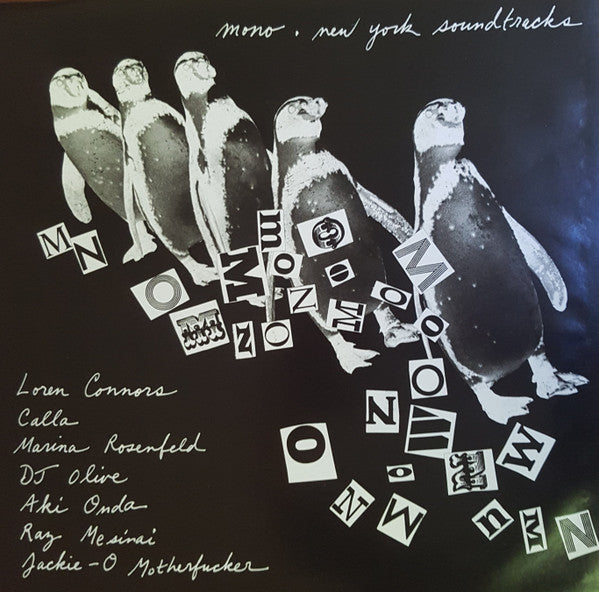 mono . new york soundtracks
M N
O M M N O
m o N
O O M O
M o O
N M
O o M
N M u N M N
Loren Connors
Calla
Marina Rosenfeld
DJ Olive
Aki Onda
Raz Mesinai
Jackie-O Motherfucker